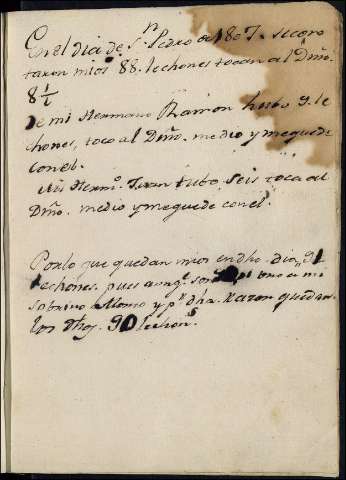 En el dia de Sn. Pedro de 1807. se cor
taron mios 88. lechones tocan al Dmo.
8 1/2
De mi Hermano Ramon hubo 9. le
chones, toco al Dmo. medio y me quede
con el.
Mi Hermo. Juan tubo seis toca al
Dmo. medio y me quede con el.
Por lo que quedan mios en dho. dia 91
lechones. pues aunqe. son uno es mi
sobrino Alonso y pr. dha. razon quedan
los dhos. 90 lechons